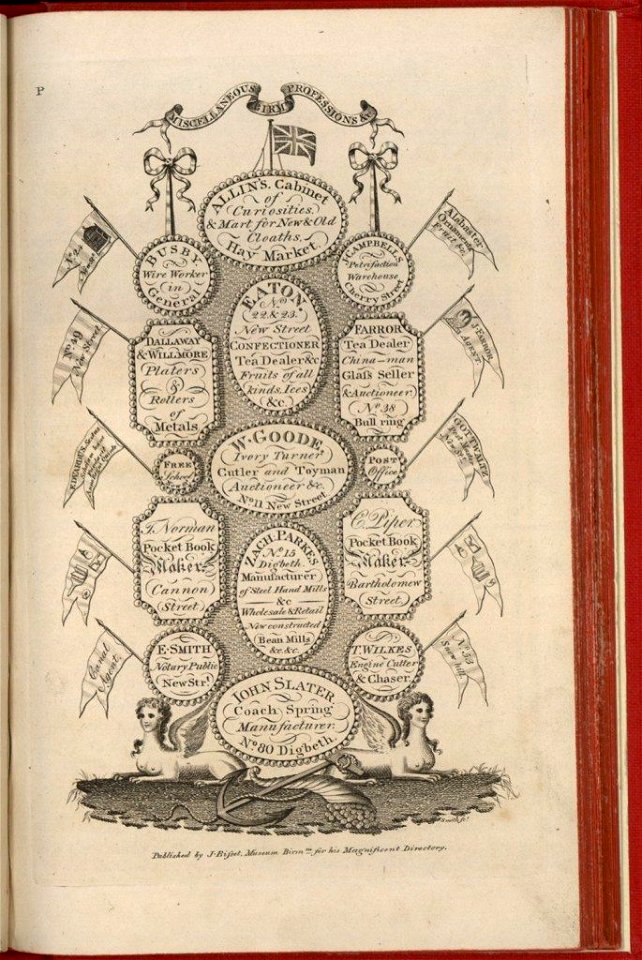 P
MISCELLANEOUS PROFESSIONS &c
BIRM
ALLIN'S Cabinet
of
Curiosities.
& Mart for New & Old
Cloaths,
Hay Market.
No. 24
BUSBY
Wire Worker
in
General
CAMPBELL'S
Petrifaction
Warehouse
Cherry Street
Alabaster
Ornaments
EATON.
No.
22 & 23.
New Street
CONFECTIONER
Tea Dealer &c
Fruits of all
kinds, Ices
&c.
No. 49
New Street.
DALLAWAY
& WILLMORE
Platers
&
Rollers
of
Metals
FARROR
Tea Dealer
China-man
Glass Seller
& Auctioneer.
No. 38
Bull ring
Agent
W. GOODE
Ivory Turner
Cutler and Toyman
Auctioneer &c
No. 11 New Street
FREE
School
POST
Office
J. Norman
Pocket Book
Maker
Cannon
Street
ZACH. PARKES
No. 15
Digbeth.
Manufacturer
of Steel Hand Mills
&c
Wholesale & Retail
New constructed
Bean Mills
&c. &c.
C. Piper
Pocket Book
Maker
Bartholomew
Street.
Canal
Agent.
E. SMITH
Notary Public
New Str.t
T. WILKES
Engine Cutter
& Chaser.
Snow hill.
JOHN SLATER
Coach Spring
Manufacturer.
No. 80 Digbeth.
Published by J. Bisset, Museum Birm.m for his Magnificent Directory.